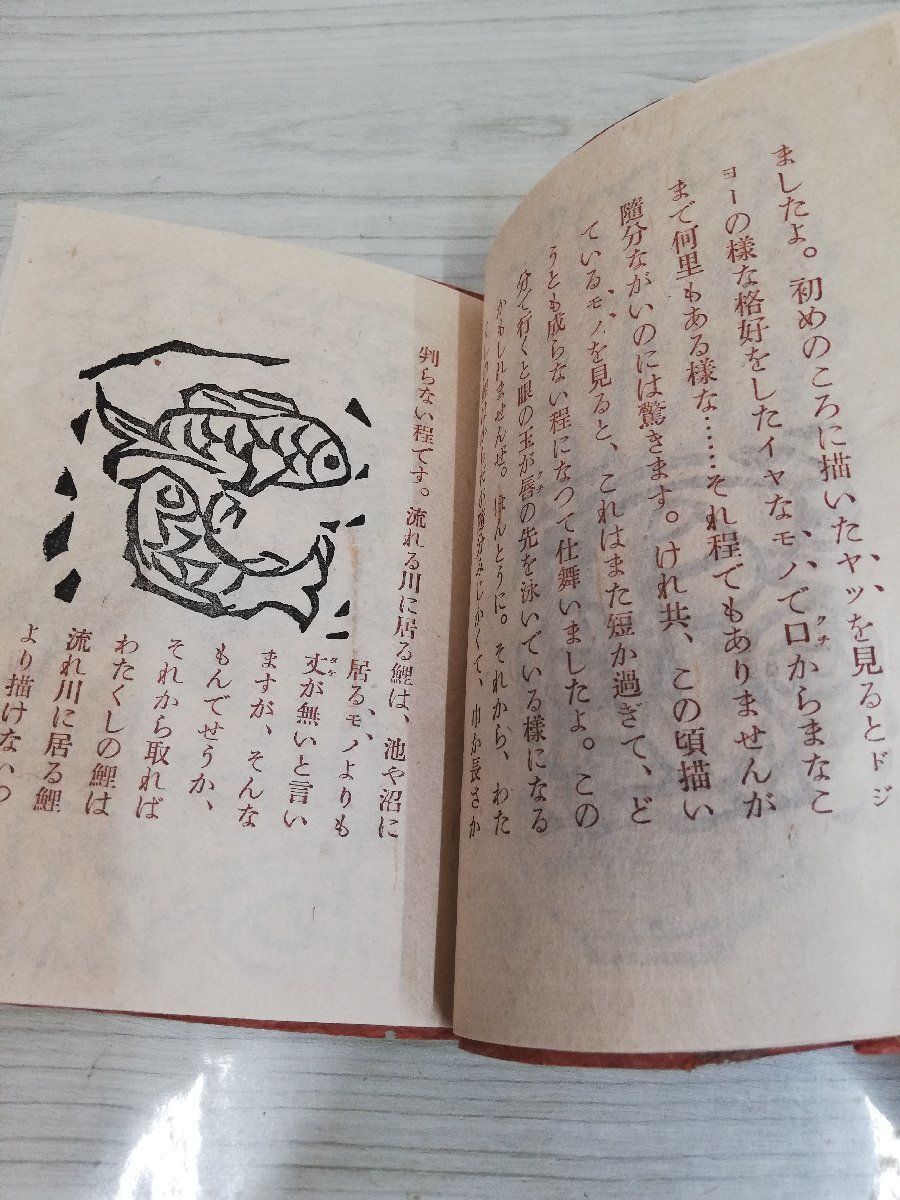 ましたよ。初めのころに描いたヤツを見るとドジ
ョーの様な格好をしたイヤなモノで口からまなこ
クチ
まで何里もある様な……それ程でもありませんが
隨分ながいのには驚きます。けれ共、この頃描い
ているモノを見ると、これはまた短か過ぎて、ど
うとも成らない程になつて仕舞いましたよ。この
分で行くと眼の玉が唇の先を泳いでいる樣になる
クチ
かもしれませんぜ。ほんとうに。それから、わた
判らない程です。流れる川に居る鯉は、池や沼に
居るモノよりも
丈が無いと言い
タケ
ますが、そんな
もんでせうか、
それから取れば
わたくしの鯉は
流れ川に居る鯉
より描けないつ